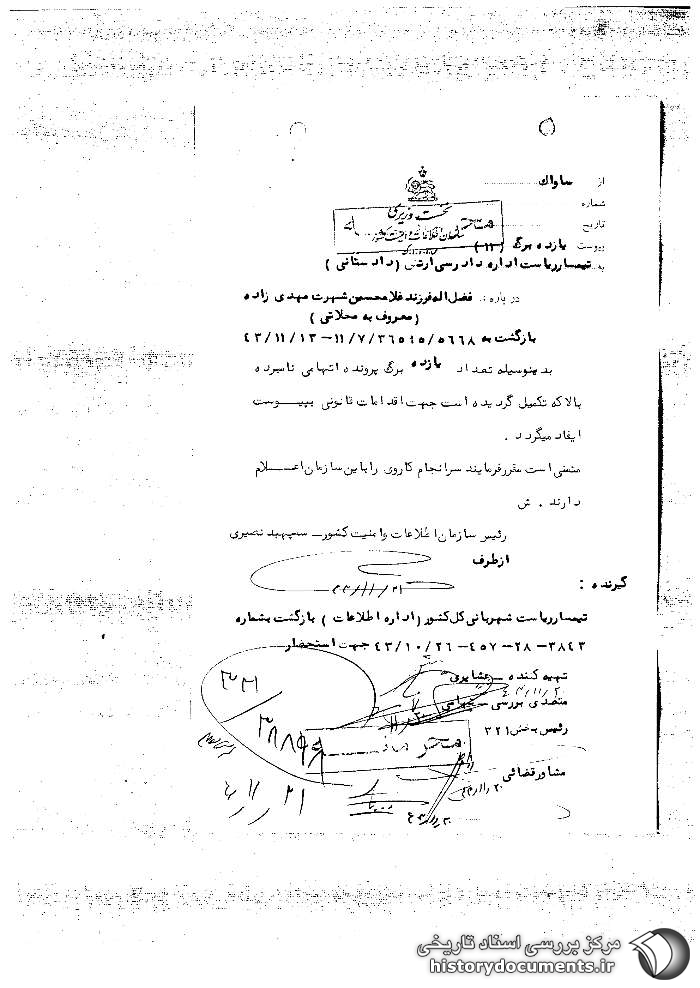 از ساواك
شماره
تاریخ
نخست وزیری
سازمان اطلاعات و امنیت کشور
پیوست یازده برگ (۱۱)
به تیمسار ریاست اداره دادرسی ارتش (دادستانی)
درباره : فضل اله فرزند غلامحسین شهرت مهدی زاده
(معروف به محلاتی)
بازگشت به ۱۱/۷/۳۶۵۴۵/۵۶۶۸-۴۳/۱۱/۱۳
بدینوسیله تعداد یازده برگ پرونده اتهامی نامبرده
بالا که تکمیل گردیده است جهت اقدامات قانونی بپیوست
ایفاد میگردد .
متمنی است مقرر فرمایند سرانجام کار وی را باین سازمان اعــلام
دارند . ش
رئیس سازمان اطلاعات و امنیت کشور ـ سپهبد نصیری
از طرف
۴۳/۱۱/۲۱
گیرنده :
تیمسار ریاست شهربانی کل کشور (اداره اطلاعات) بازگشت بشماره
۳۸۴۳-۲۸-۴۵۷-۴۳/۱۰/۲۶ جهت استحضار
تهیه کننده ـ عشایری
متصدی بررسی ـ
رئیس بخش ۳۲۱
مشاور قضائی
مرکز بررسی اسناد تاریخی
historydocuments.ir